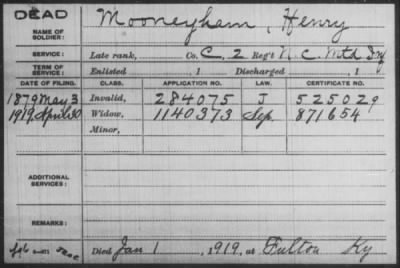 DEAD
NAME OF SOLDIER: Mooneyham, Henry
SERVICE: Late rank, Co. C, 2 Reg't N.C. Mtd Inf
TERM OF SERVICE: Enlisted , 1 Discharged , 1
DATE OF FILING. CLASS. APPLICATION NO. LAW. CERTIFICATE NO.
1879 May 3 Invalid, 284075 J 525029
1919, April 30 Widow, 1140373 Sep. 871654
Minor,
ADDITIONAL SERVICES:
REMARKS:
Died Jan 1, 1919, at Fulton Ky